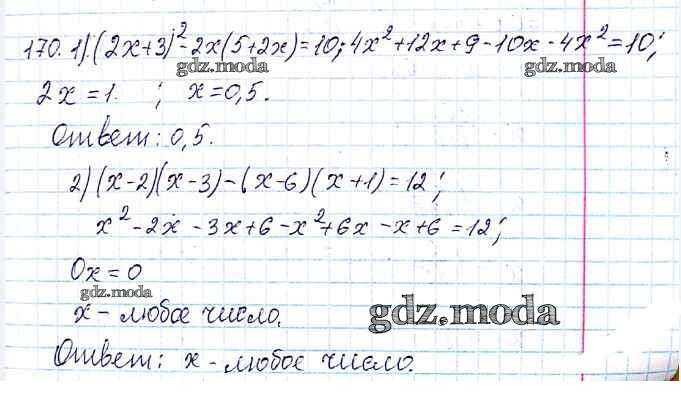 170. 1). (2x+3)²-2x(5+2x)=10; 4x²+12x+9-10x-4x²=10;
gdz.moda gdz.moda
2x=1. ; x=0,5.
Ответ: 0,5.
gdz.moda
2) (x-2)(x-3)-(x-6)(x+1)=12;
x²-2x-3x+6-x²+6x-x+6=12;
0x=0
gdz.moda
x- любое число.
gdz.moda
Ответ: x- любое число.